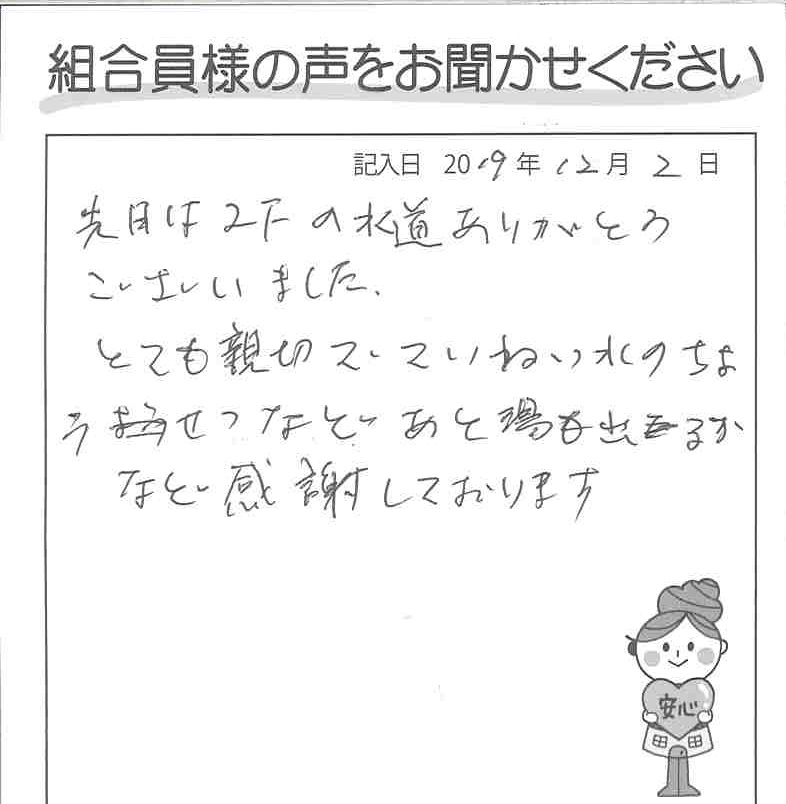 組合員様の声をお聞かせください
記入日 2019年12月2日
先日は2Fの水道ありがとう
ございました、
とても親切でていねい水のちょ
うせつなどあと湯も出るか
など感謝しております
安心